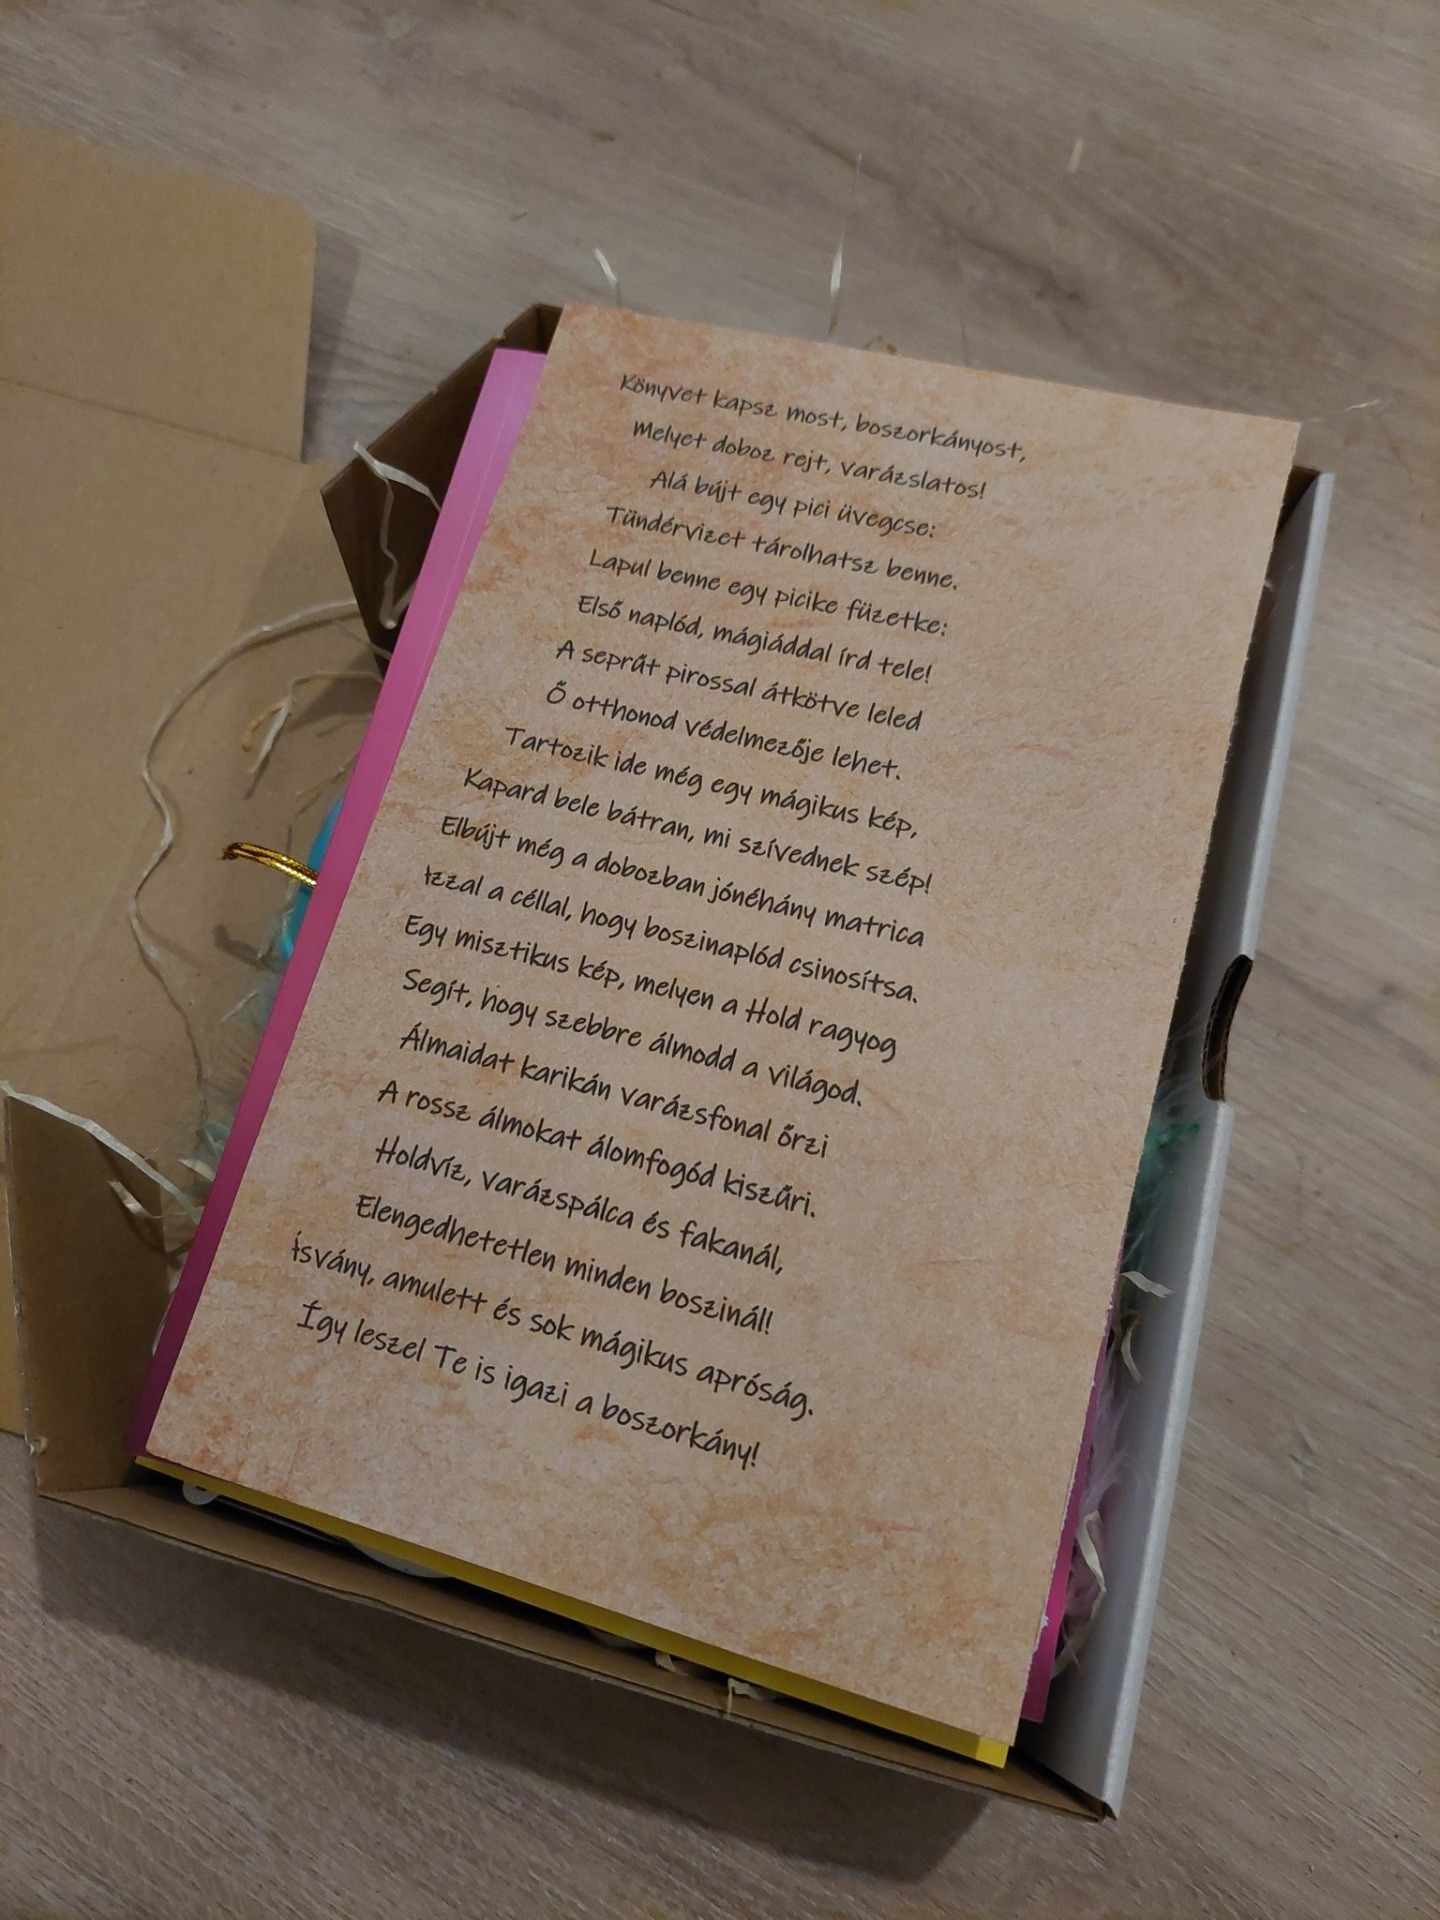 Könyvet kapsz most, boszorkányost,
Melyet doboz rejt, varázslatos!
Alá bújt egy pici üvegcse:
Tündérvizet tárolhatsz benne.
Lapul benne egy picike füzetke:
Első naplód, mágiáddal írd tele!
A seprűt pirossal átkötve leled
Ő otthonod védelmezője lehet.
Tartozik ide még egy mágikus kép,
Kapard bele bátran, mi szívednek szép!
Elbújt még a dobozban jónéhány matrica
Izzal a céllal, hogy boszinaplód csinosítsa.
Egy misztikus kép, melyen a Hold ragyog
Segít, hogy szebbre álmodd a világod.
Álmaidat karikán varázsfonal őrzi
A rossz álmokat álomfogód kiszűri.
Holdvíz, varázspálca és fakanál,
Elengedhetetlen minden boszinál!
Ásvány, amulett és sok mágikus apróság.
Így leszel Te is igazi a boszorkány!